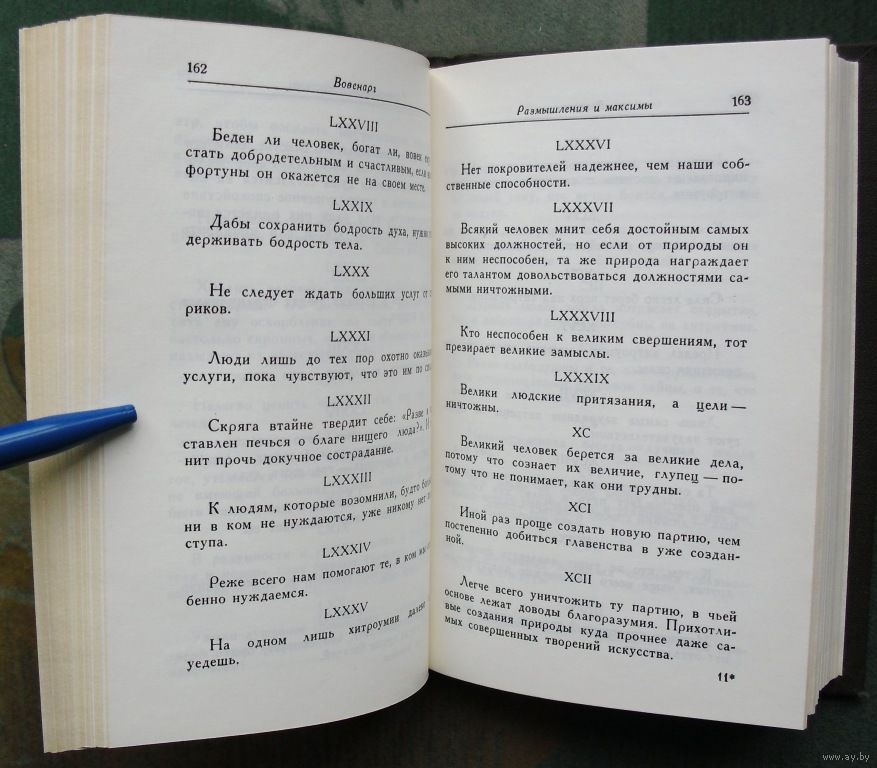 162
Вовенарг
LXXVIII
Беден ли человек, богат ли, вовек
стать добродетельным и счастливым, если
фортуны он окажется не на своем месте.
LXXIX
Дабы сохранить бодрость духа,
держивать бодрость тела.
LXXX
Не следует ждать больших услуг от
риков.
LXXXI
Люди лишь до тех пор охотно
услуги, пока чувствуют, что это им по
LXXXII
Скряга втайне твердит себе: «Разве я
ставлен печься о благе нищего люда?».
нит прочь докучное сострадание.
LXXXIII
К людям, которые возомнили, будто
ни в ком не нуждаются, уже никому нет
ступа.
LXXXIV
Реже всего нам помогают те, в ком мы
бенно нуждаемся.
LXXXV
На одном лишь хитроумии далеко
уедешь.
Размышления и максимы
163
LXXXVI
Нет покровителей надежнее, чем наши соб-
ственные способности.
LXXXVII
Всякий человек мнит себя достойным самых
высоких должностей, но если от природы он
к ним неспособен, та же природа награждает
его талантом довольствоваться должностями са-
мыми ничтожными.
LXXXVIII
Кто неспособен к великим свершениям, тот
презирает великие замыслы.
LXXXIX
Велики людские притязания, а цели —
ничтожны.
XC
Великий человек берется за великие дела,
потому что сознает их величие, глупец — по-
тому что не понимает, как они трудны.
XCI
Иной раз проще создать новую партию, чем
постепенно добиться главенства в уже создан-
ной.
XCII
Легче всего уничтожить ту партию, в чьей
основе лежат доводы благоразумия. Прихотли-
вые создания природы куда прочнее даже са-
мых совершенных творений искусства.
11*
www.ay.by